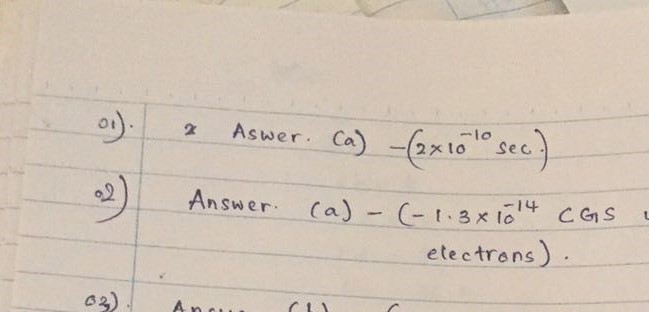 01). 2 Aswer. (a) -(2×10⁻¹⁰ sec.)
02) Answer. (a) - (-1.3×10⁻¹⁴ CGS
electrons).
03).